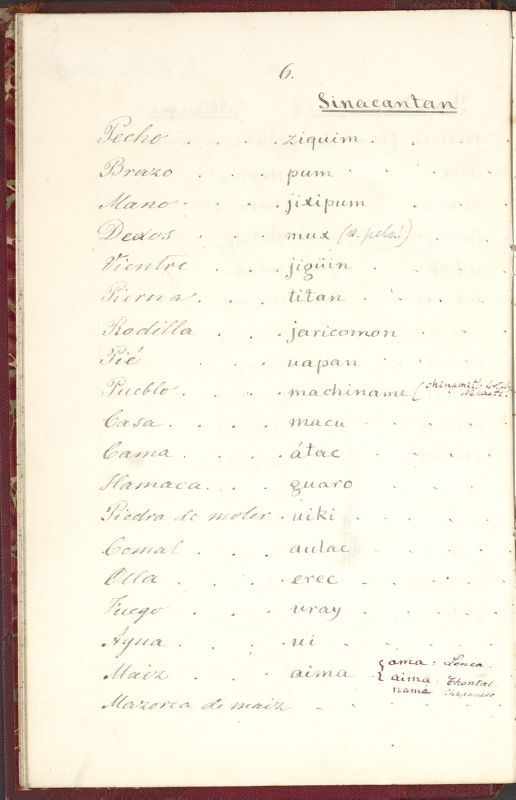 6.
Sinacantan
Pecho . . . . ziquim . . .
Brazo . . . pum . . . .
Mano . . . jixipum . . .
Dedos . . . mux
Vientre . . . jigüin . . . .
Pierna . . . titan . . . .
Rodilla . . . jaricomon . . .
Pié . . . uapan . . . .
Pueblo . . . . machiname (chinamitl
Casa . . . . macu . . . .
Cama . . . . átac . . . .
Hamaca . . . guaro . . . .
Piedra de moler . uiki . . . .
Comal . . . aulac . . . .
Olla . . . . erec . . . .
Fuego . . . uray . . . .
Agua . . . ui
Maiz . . . aima { ama : Lenca.
aima : Chontal
nama Chapaneco
Mazorca de maiz . . . .